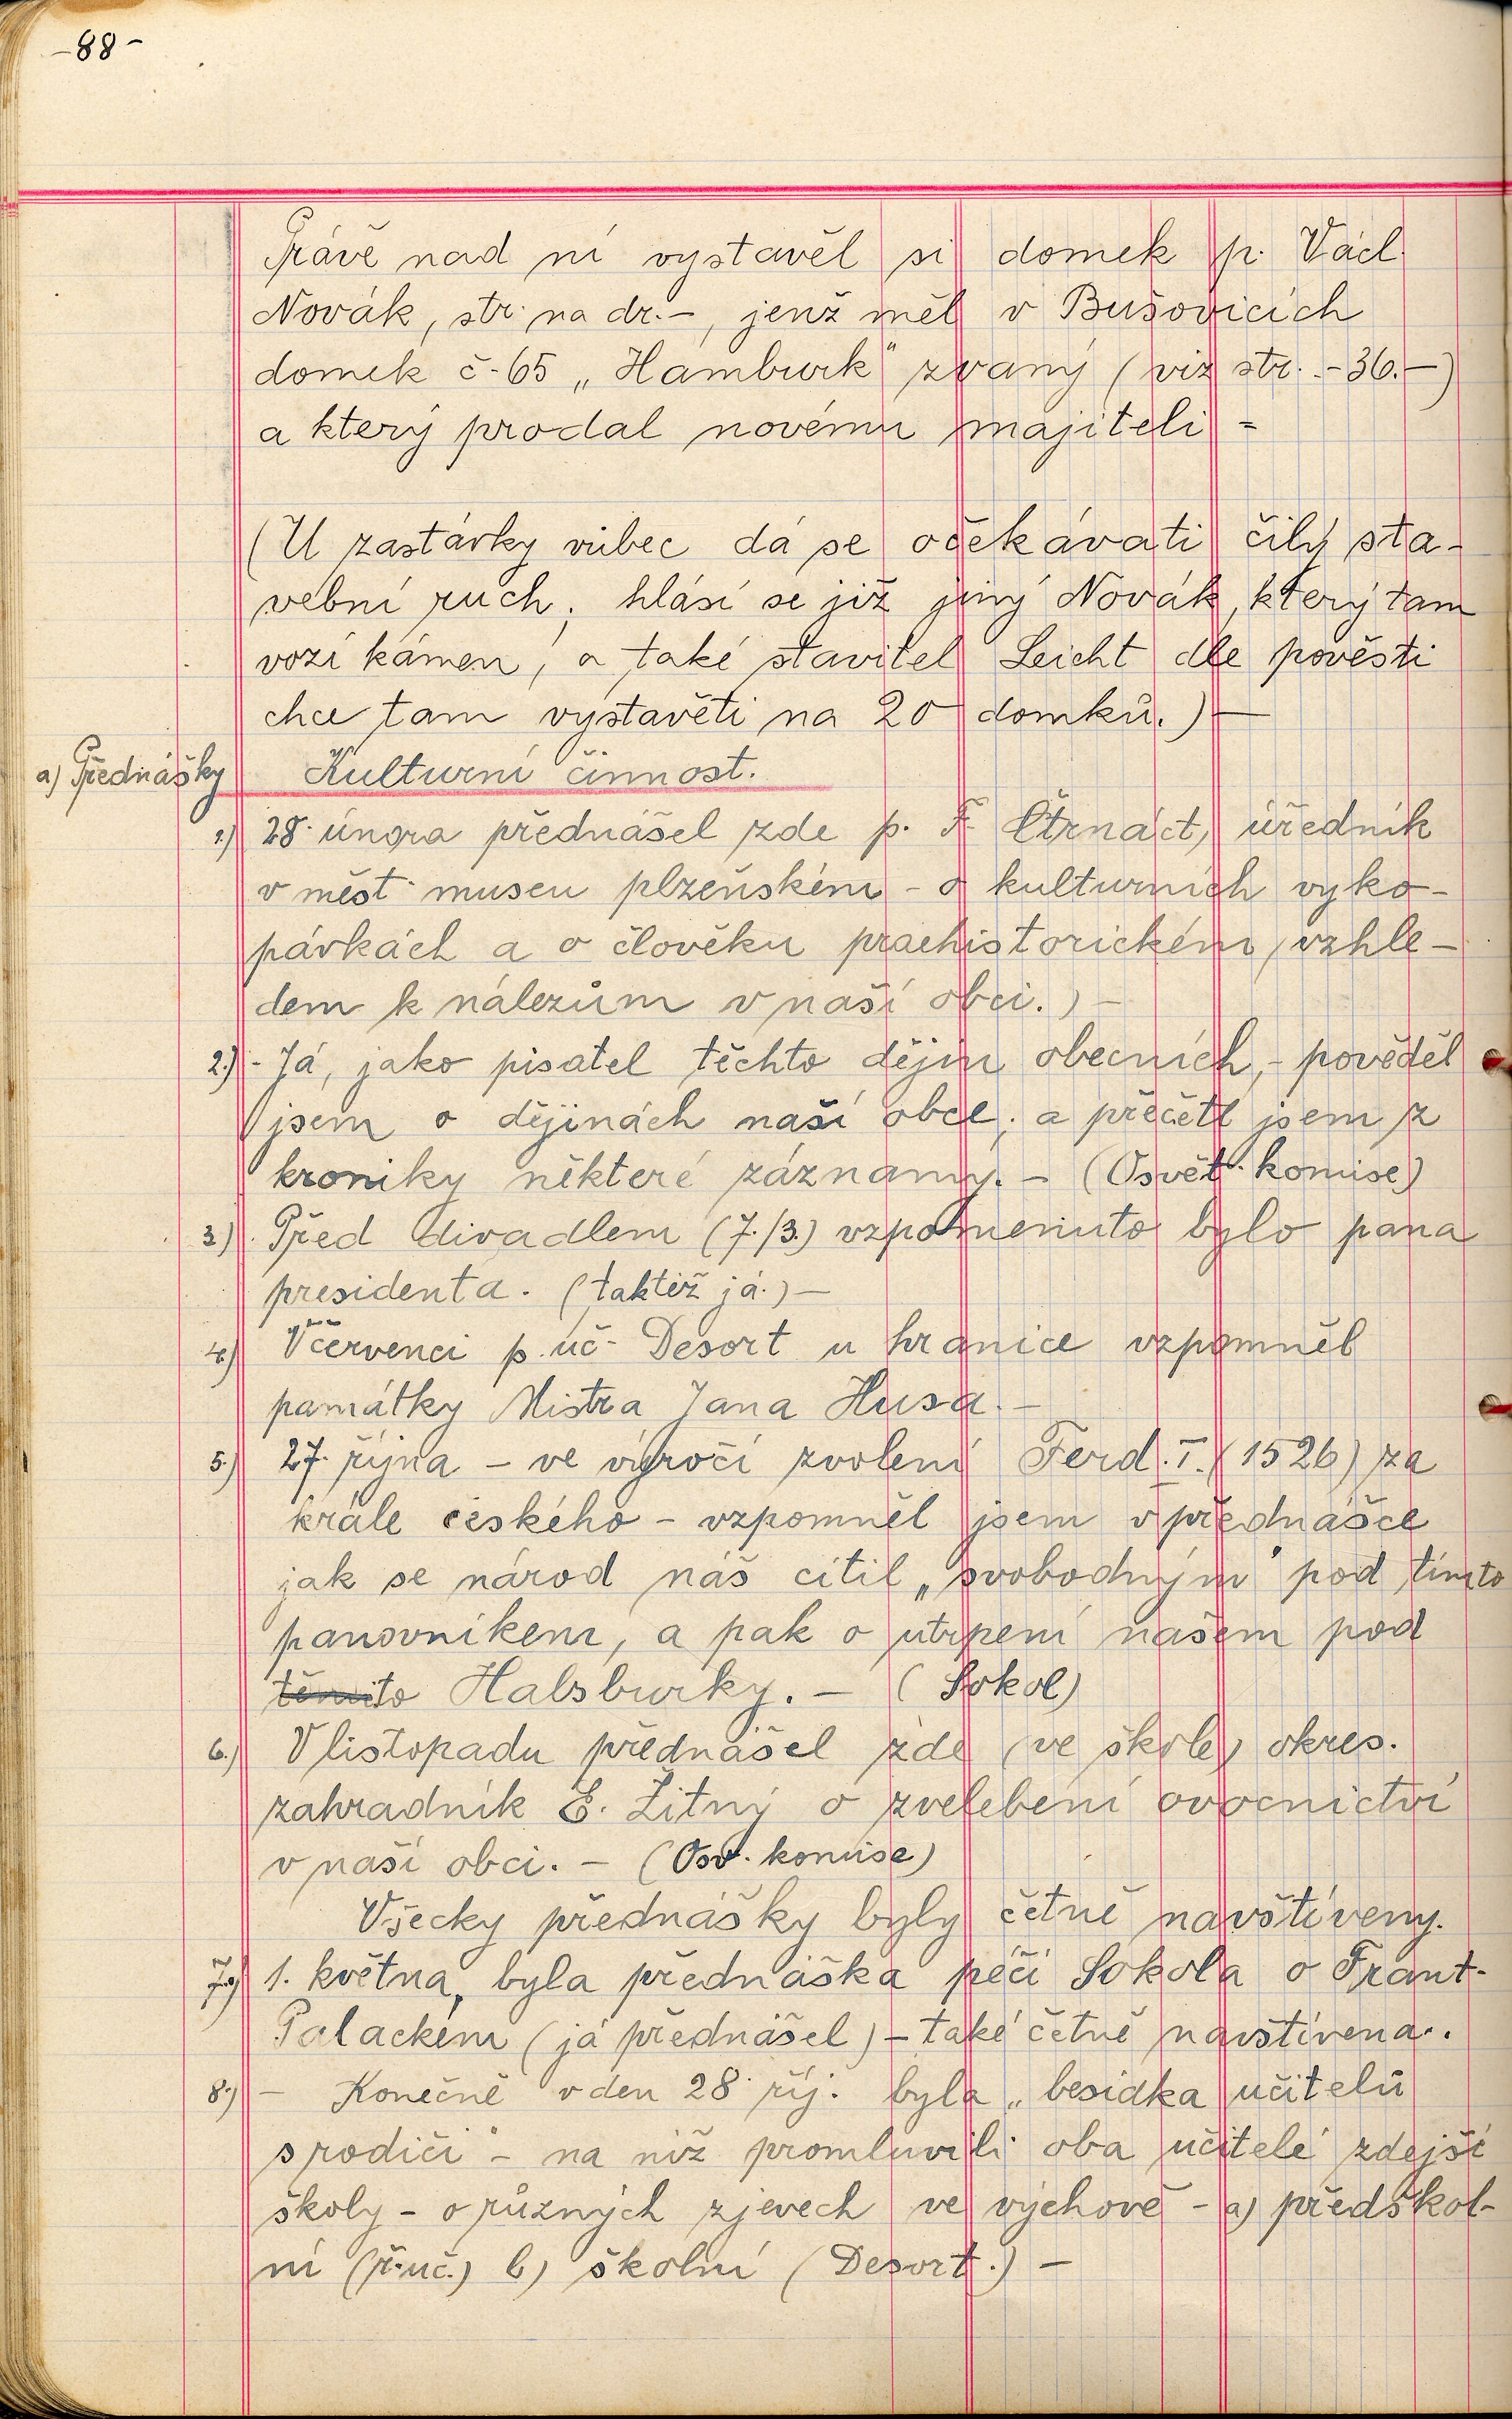 -88-
Právě nad ní vystavěl si domek p. Václ.
Novák, str. na dr.-, jenž měl v Bušovicích
domek č. 65 „Hamburk" zvaný (viz str. -36.-)
a který prodal novému majiteli =
(U zastávky vůbec dá se očekávati čilý sta-
vební ruch; hlásí se již jiný Novák, který tam
vozí kámen, a také stavitel Leicht dle pověsti
chce tam vystavěti na 20 domků.) -
a) Přednášky Kulturní činnost.
1.) 28. února přednášel zde p. F. Čtrnáct, úředník
v měst. museu plzeňském - o kulturních vyko-
pávkách a o člověku praehistorickém (vzhle-
dem k nálezům v naší obci.) -
2.) - Já, jako pisatel těchto dějin obecních, - pověděl
jsem o dějinách naší obce; a přečetl jsem z
kroniky některé záznamy. - (Osvět. komise)
3.) Před divadlem (7./3.) vzpomenuto bylo pana
presidenta. (taktéž já.) -
4.) V červenci p. uč. Desort u hranice vzpomněl
památky Mistra Jana Husa. -
5.) 27. října - ve výročí zvolení Ferd. I. (1526) za
krále českého - vzpomněl jsem v přednášce
jak se národ náš cítil „svobodným" pod tímto
panovníkem, a pak o utrpení našem pod
těmito Halsburky. - (Sokol)
6.) V listopadu přednášel zde (ve škole) okres.
zahradník E. Žitný o zvelebení ovocnictví
v naší obci. - (Osv. komise)
Všecky přednášky byly četně navštíveny.
7.) 1. května, byla přednáška péčí Sokola o Frant.
Palackém (já přednášel) - také četně navštívena..
8.) - Konečně v den 28. říj. byla „besídka učitelů
s rodiči" - na níž promluvili oba učitelé zdejší
školy - o různých zjevech ve výchově - a) předškol-
ní (ř. uč.) b) školní (Desort.) -